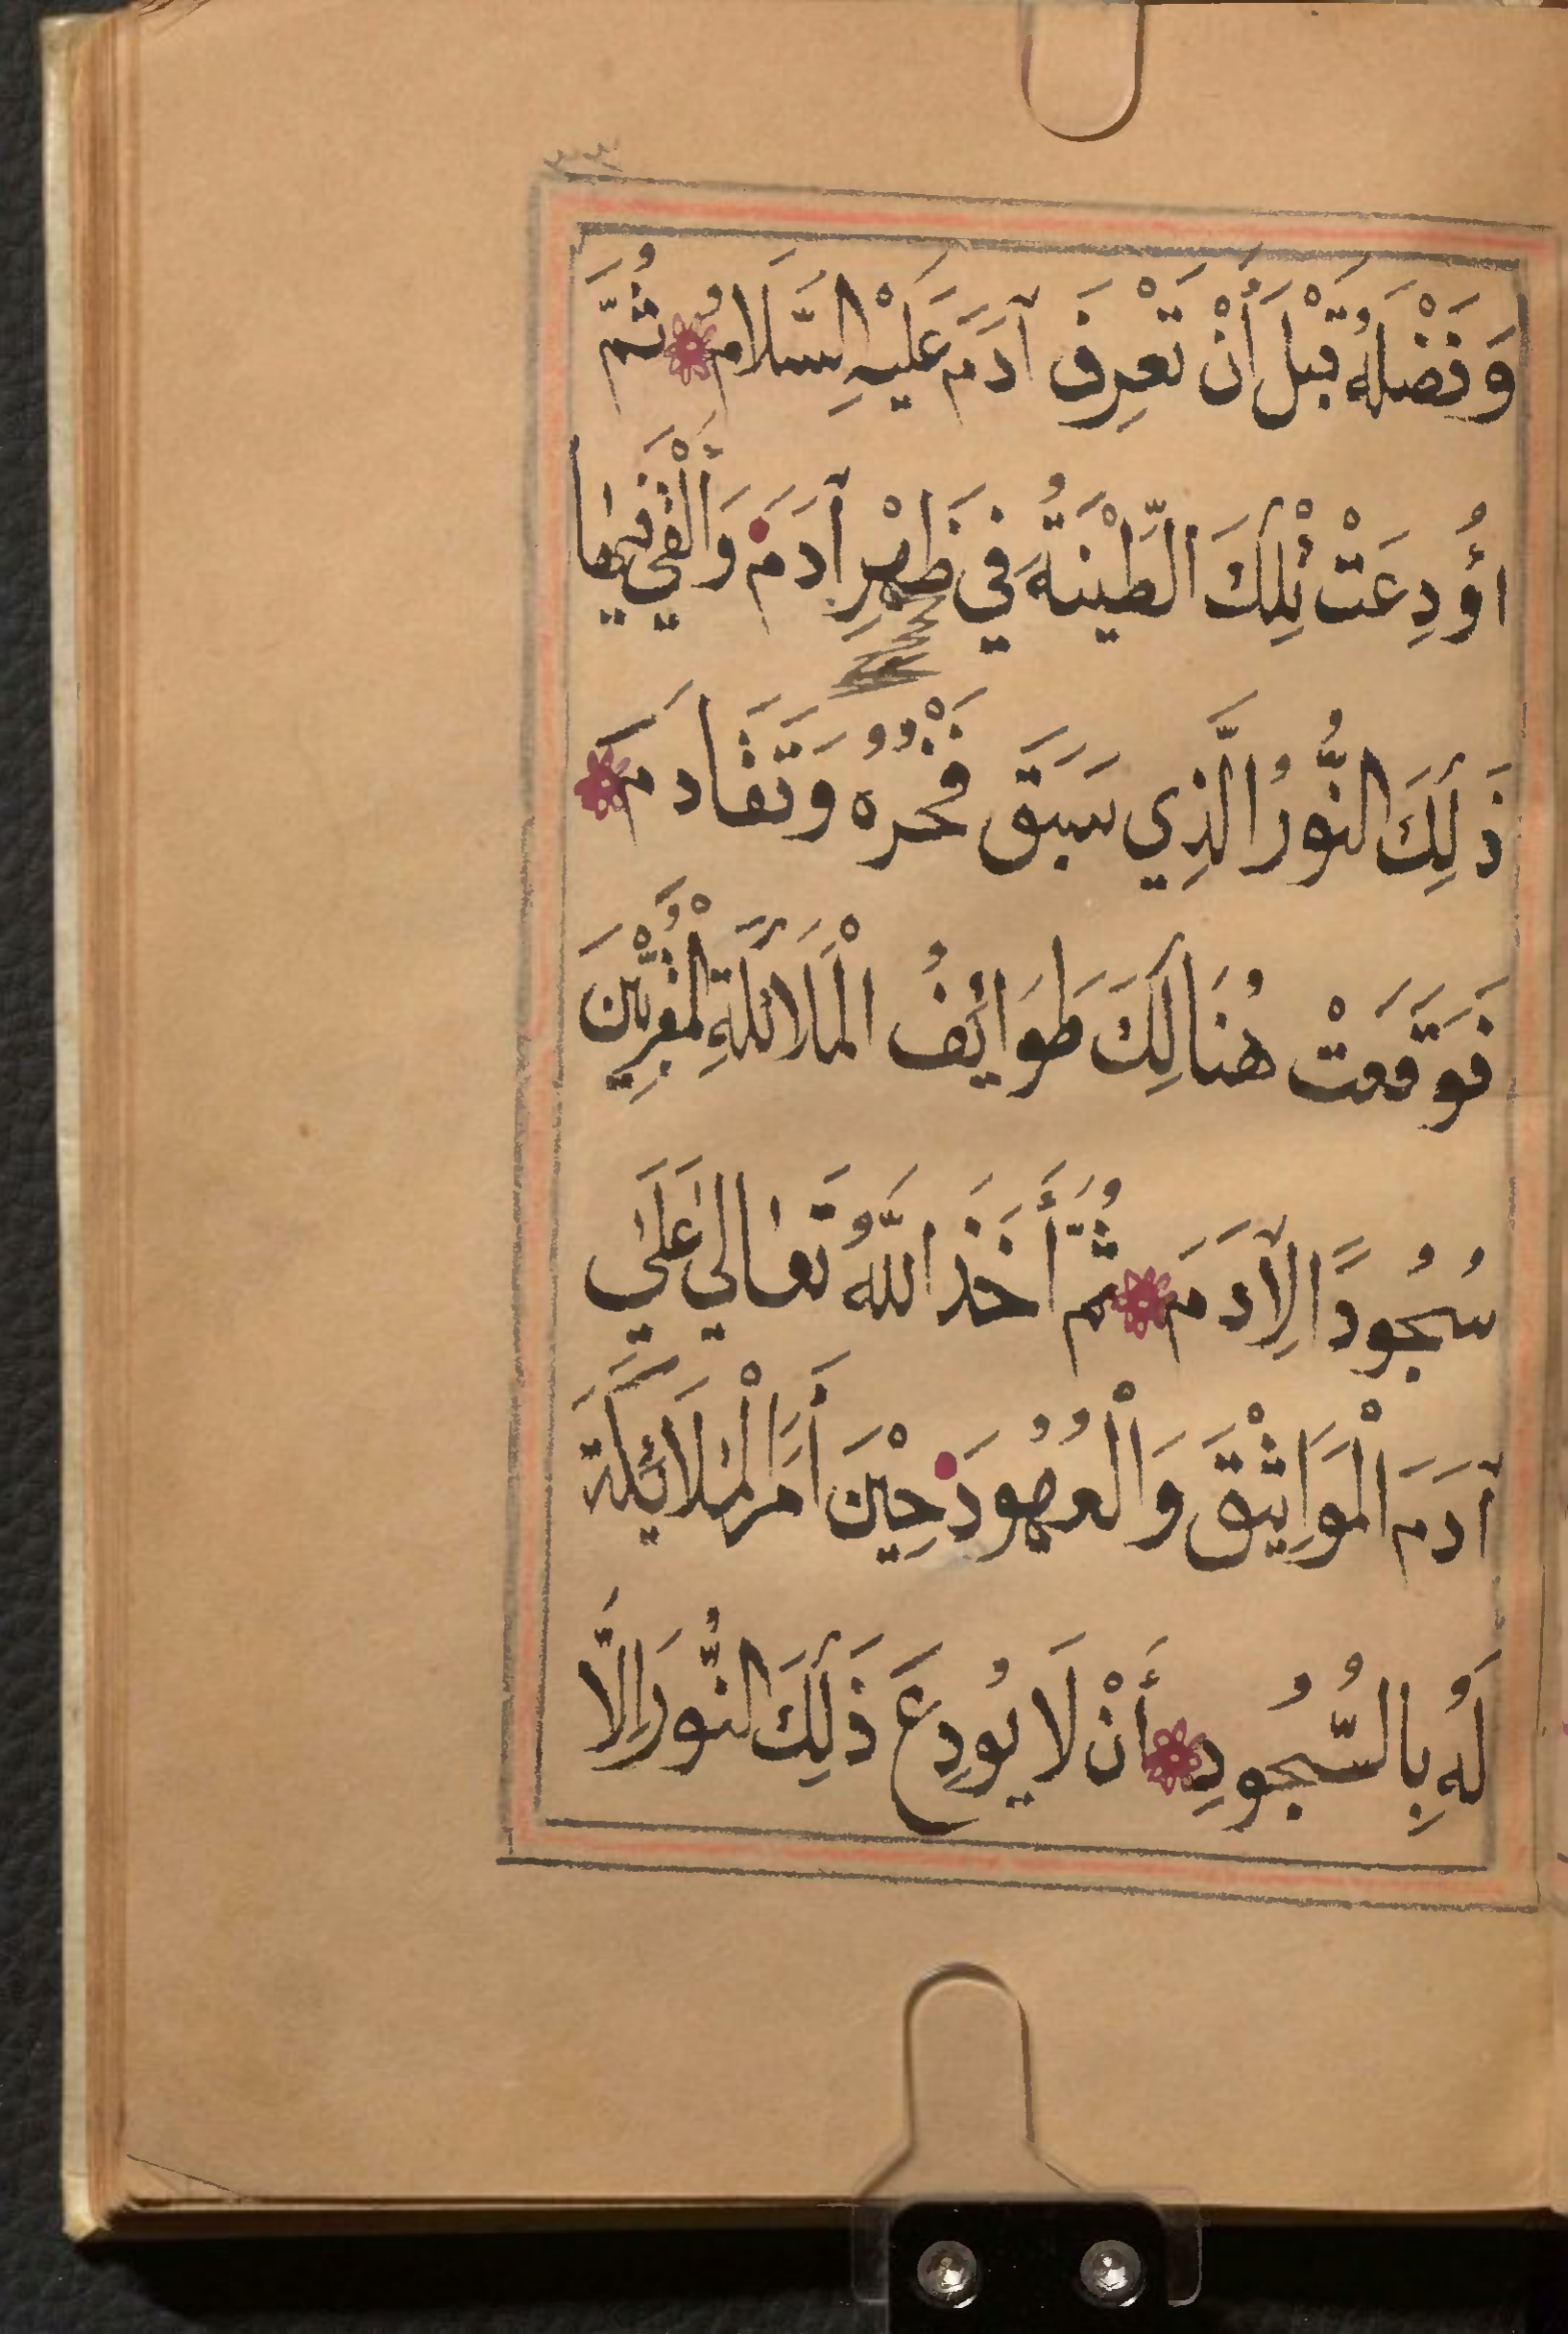 وَفَضْلَهُ قَبْلَ أَنْ تَعْرِفَ آدَمَ عَلَيْهِ السَّلَامُ ثُمَّ
اُؤدِعَتْ تِلْكَ الطِّيْنَةُ فِي ظَهْرِ آدَمَ وَأَلْقَى فِيْهَا
ذَلِكَ النُّوْرُ الَّذِي سَبَقَ فَخْرُهُ وَتَقَادَمَ
فَوَقَعَتْ هُنَالِكَ طَوَائِفُ الْمَلَائِكَةِ الْمُقَرَّبِيْنَ
سُجُودًا لِآدَمَ ثُمَّ أَخَذَ اللَّهُ تَعَالَي عَلَي
آدَمَ الْمَوَاثِيْقَ وَالْعُهُودَ حِيْنَ أَمَرَ الْمَلَائِكَةَ
لَهُ بِالسُّجُودِ أَنْ لَا يُودِعَ ذَلِكَ النُّورَ إِلَّا